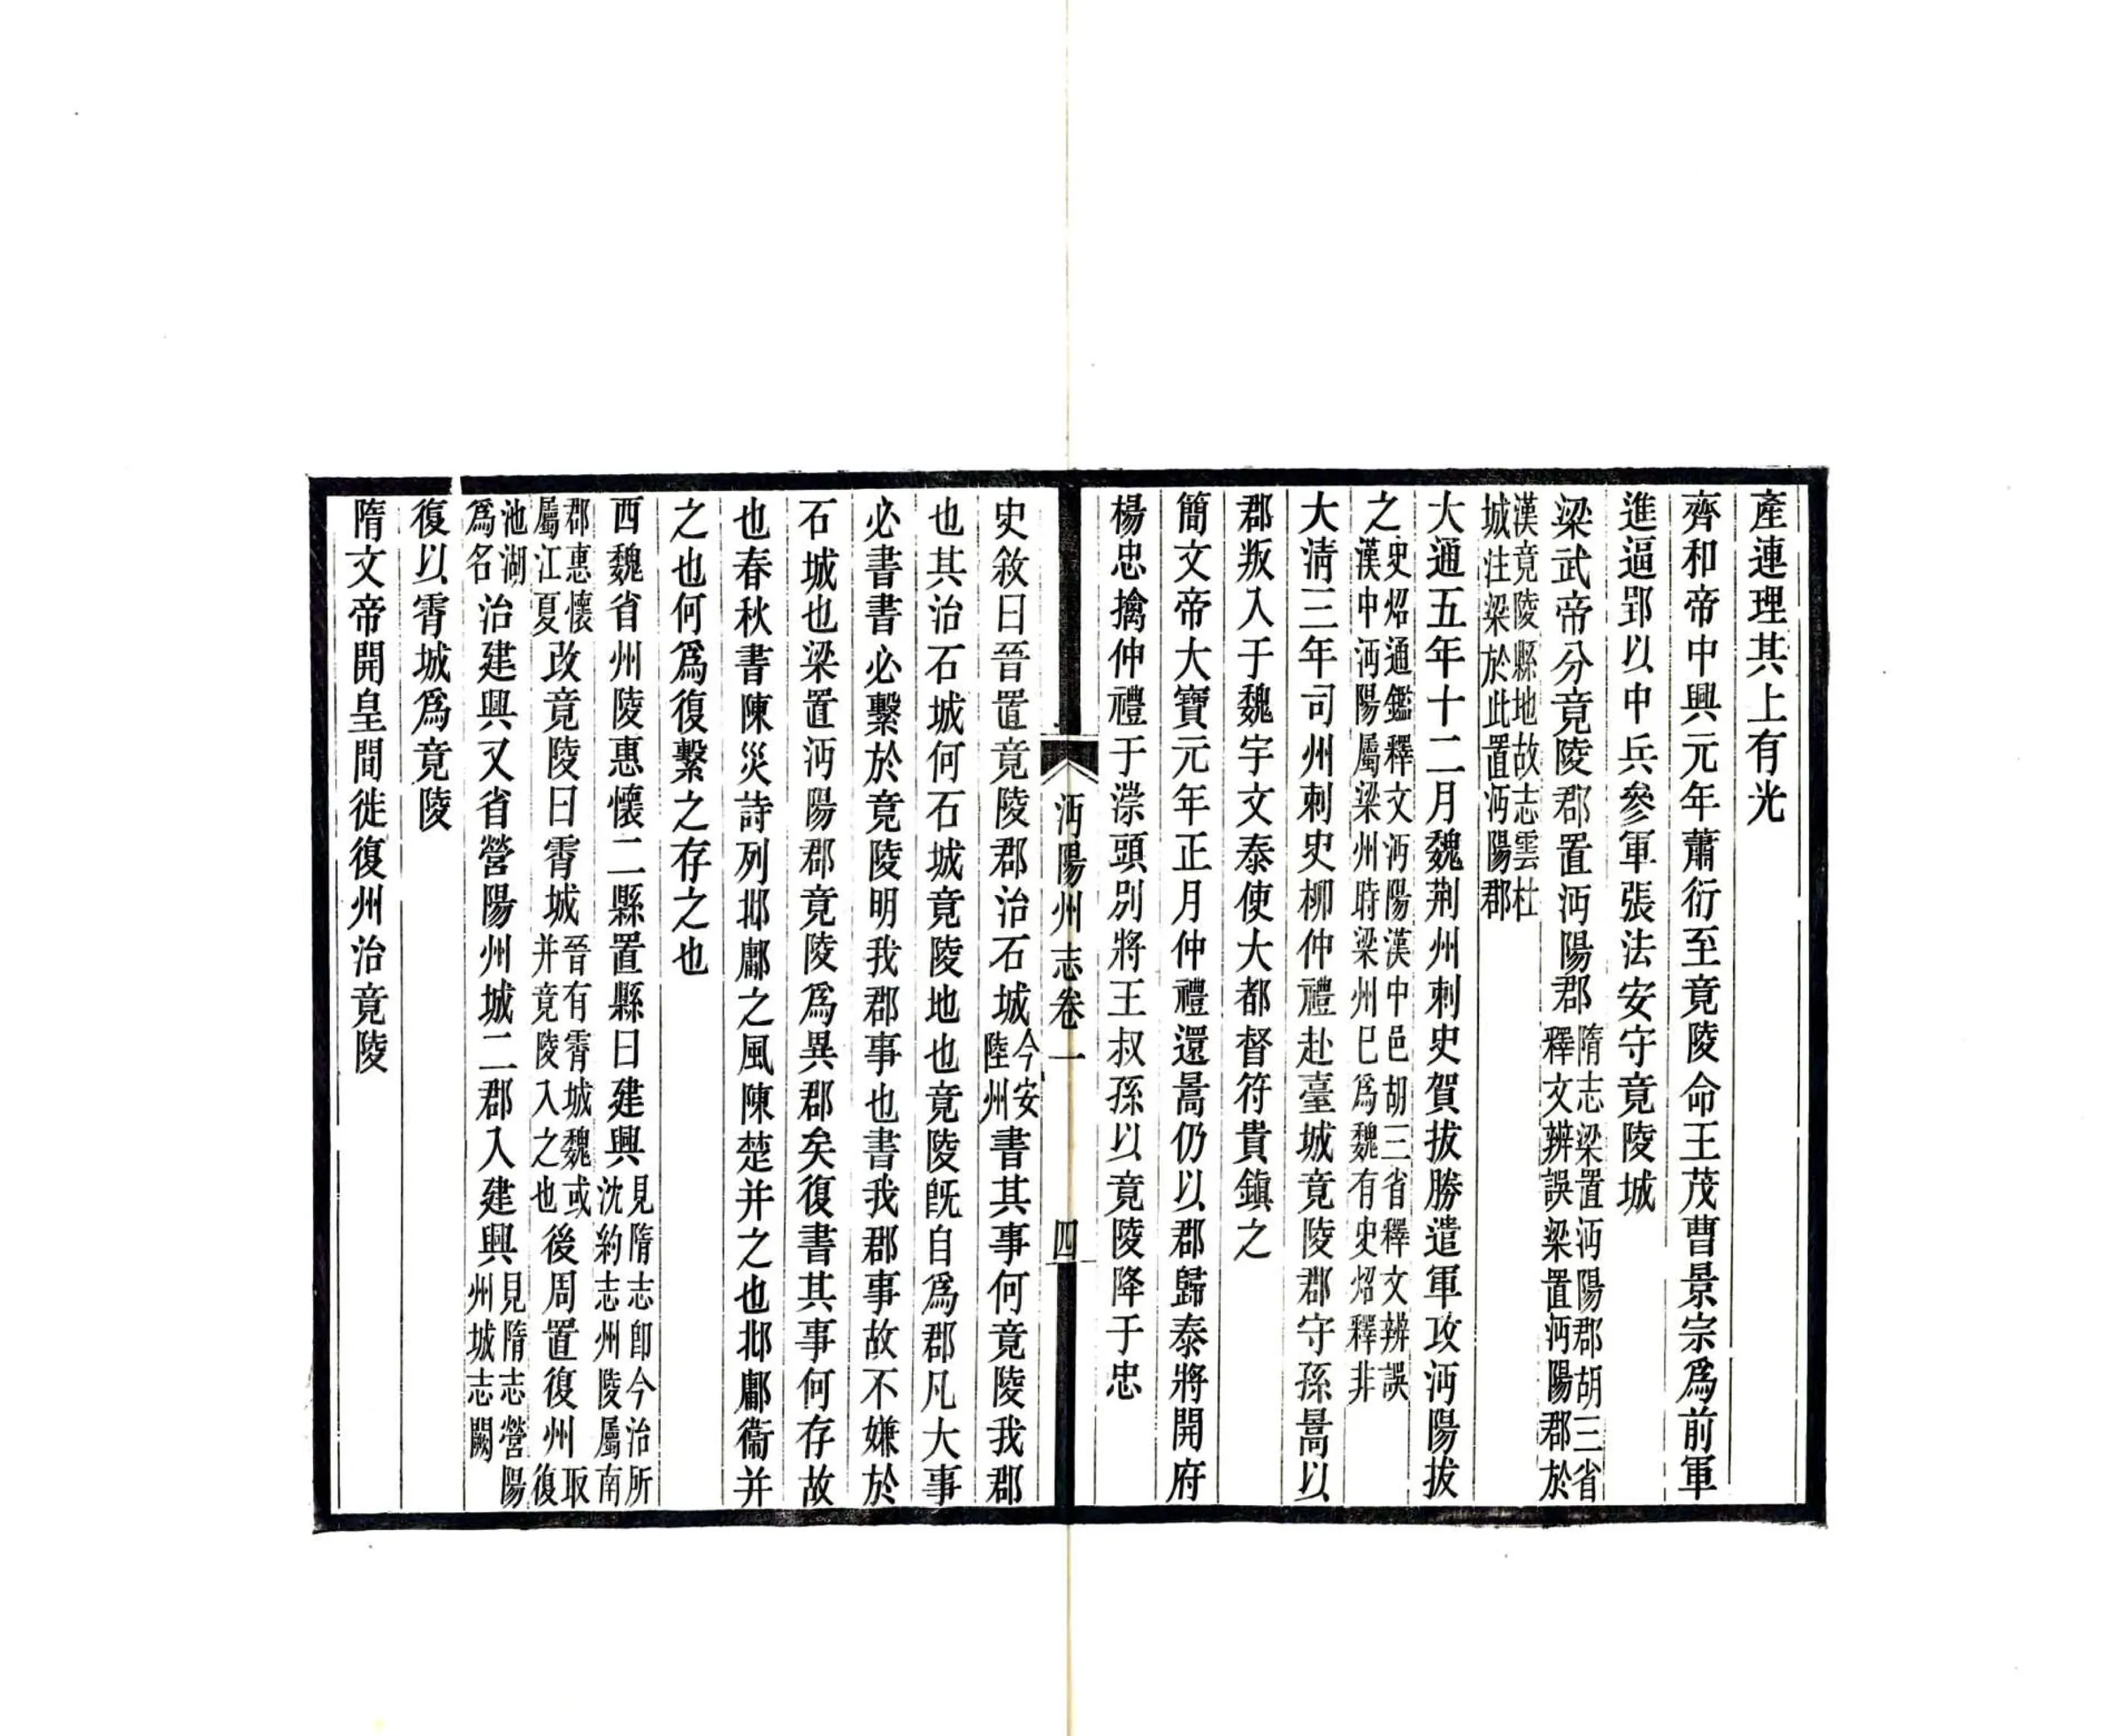 產連理其上有光
齊和帝中興元年蕭衍至竟陵命王茂曹景宗爲前軍
進逼郢以中兵參軍張法安守竟陵城
梁武帝分竟陵郡置沔陽郡隋志梁置沔陽郡胡三省釋文辨誤梁置沔陽郡於
漢竟陵縣地故志雲杜城注梁於此置沔陽郡
大通五年十二月魏荆州刺史賀拔勝遣軍攻沔陽拔
之史炤通鑑釋文沔陽漢中邑胡三省釋文辨誤漢中沔陽屬梁州時梁州巳爲魏有史炤釋非
大淸三年司州刺史柳仲禮赴臺城竟陵郡守孫暠以
郡叛入于魏宇文泰使大都督符貴鎮之
簡文帝大寶元年正月仲禮還暠仍以郡歸泰將開府
楊忠擒仲禮于漴頭別將王叔孫以竟陵降于忠
沔陽州志卷一 四
史敘曰晉置竟陵郡治石城今安陸州書其事何竟陵我郡
也其治石城何石城竟陵地也竟陵旣自爲郡凡大事
必書書必繫於竟陵明我郡事也書我郡事故不嫌於
石城也梁置沔陽郡竟陵爲異郡矣復書其事何存故
也春秋書陳災詩列邶鄘之風陳楚并之也邶鄘衞并
之也何爲復繫之存之也
西魏省州陵惠懷二縣置縣曰建興見隋志卽今治所沈約志州陵屬南
郡惠懷屬江夏改竟陵曰霄城晉有霄城魏或并竟陵入之也後周置復州取復
池湖爲名治建興又省營陽州城二郡入建興見隋志營陽州城志闕
復以霄城爲竟陵
隋文帝開皇間徙復州治竟陵